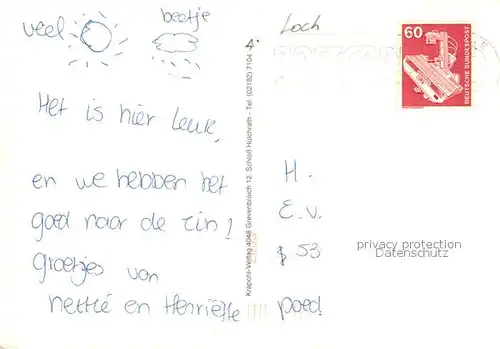 veel beetje
Het is hier leuk,
en we hebben het
goed naar de zin!
groetjes van
Nettie en Henriëtte
Krapohl-Verlag 4048 Grevenbroich 12, Schloß Hülchrath - Tel. (02182) 7104
Loch
60
DEUTSCHE BUNDESPOST
H.
E.V.
53
poed!
privacy protection
Datenschutz